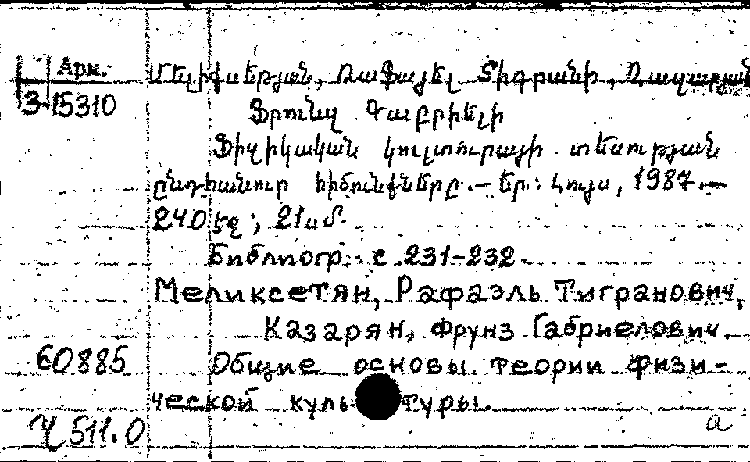 Арм.
З-15310
Մելիքսեթյան, Ռաֆայել Տիգրանի, Ղազարյան
Ֆրունզ Գաբրիելի
Ֆիզիկական կուլտուրայի տեսության
ընդհանուր հիմունքները.— Եր.: Լույս, 1987.—
240 էջ ; 21 սմ.
Библиогр. с 231-232
Меликсетян, Рафаэль Тигранович,
Казарян, Фрунз Габриелович.
60885
Общие основы теории физи-
ческой культуры.
Ч 511.0
а